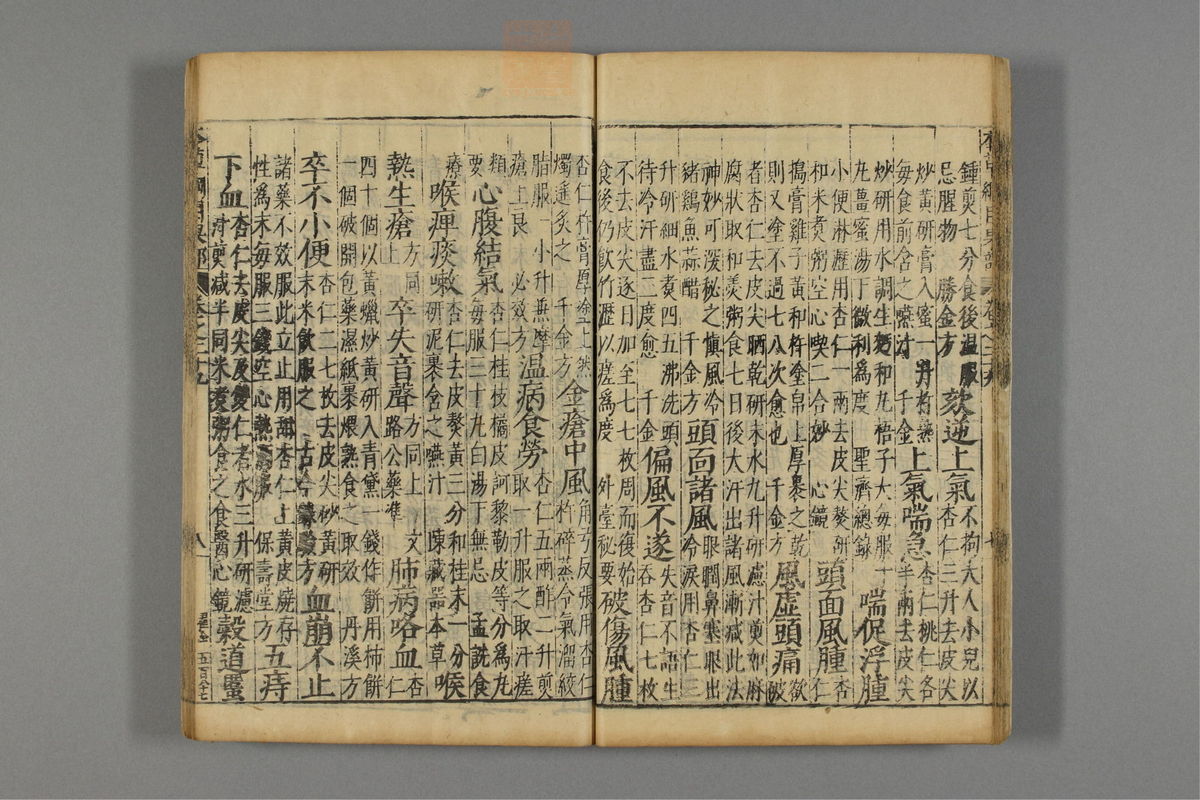 鍾煎七分食後溫服欬逆上氣不拘大人小兒以
忌腥物 勝金方 杏仁三升去皮尖
炒黃研膏入蜜一升杵熟上氣喘急杏仁桃仁各
每食前含之嚥汁 千金 半兩去皮尖
炒研用水調生麪和丸梧子大每服十
丸薑蜜湯下微利爲度 聖濟總錄喘促浮腫
小便淋瀝用杏仁一兩去皮尖熬研
和米煮粥空心喫二合妙 心鏡頭面風腫杏仁
搗膏雞子黃和杵塗帛上厚裹之乾
則又塗不過七八次愈也 千金方風虛頭痛欲破
者杏仁去皮尖晒乾研末水九升研濾汁煎如麻
腐狀取和羹粥食七日後大汗出諸風漸减此法
神妙可深秘之慎風冷
豬鷄魚蒜醋 千金方頭面諸風眼瞤鼻塞眼出
冷淚用杏仁三
升研細水煮四五沸洗頭
待冷汗盡三度愈 千金偏風不遂失音不語生
吞杏仁七枚
不去皮尖逐日加至七七枚周而復始
食後仍飲竹瀝以瘥爲度 外臺秘要破傷風腫
杏仁杵膏厚塗上然
燭遥炙之 千金方金瘡中風角弓反張用杏仁
杵碎蒸令氣溜絞
脂服一小升兼摩
瘡上良 必效方溫病食勞杏仁五兩酢二升煎
取一升服之取汗瘥
類要心腹結氣杏仁桂枝橘皮訶黎勒皮等分爲丸
每服三十丸白湯下無忌 孟詵食
療喉痺痰嗽杏仁去皮熬黃三分和桂末一分
研泥裹含之嚥汁 陳藏器本草喉
熱生瘡方同
上卒失音聲方同上 文
路公藥準肺病咯血杏仁
四十個以黃蠟炒黃研入青黛一錢作餅用柿餅
一個破開包藥濕紙裹煨熟食之取效 丹溪方
卒不小便杏仁二七枚去皮尖炒黃研
末米飲服之 古今錄驗方血崩不止
諸藥不效服此立止用甜杏仁上黃皮燒存
性爲末每服三錢空心熱酒服 保壽堂方五痔
下血杏仁去皮尖及雙仁者水三升研濾
汁煎减半同米煮粥食之食醫心鏡穀道䘌